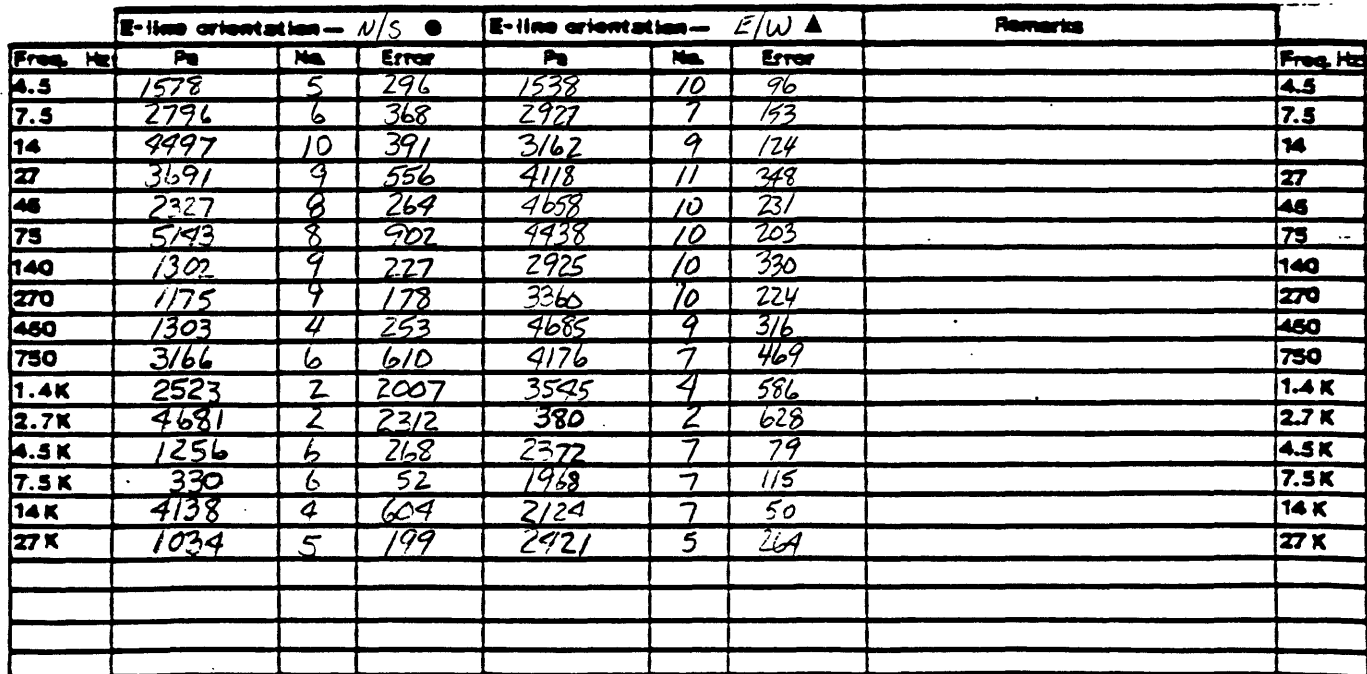 E-line orientation— N/S ● E-line orientation— E/W ▲ Remarks
Freq. Hz Pa No. Error Pa No. Error Freq. Hz
4.5 1578 5 296 1538 10 96 4.5
7.5 2796 6 368 2927 7 153 7.5
14 4497 10 391 3162 9 124 14
27 3691 9 556 4118 11 348 27
45 2327 8 264 4658 10 231 45
75 5143 8 902 4438 10 203 75
140 1302 9 227 2925 10 330 140
270 1175 9 178 3360 10 224 270
450 1303 4 253 4685 9 316 450
750 3166 6 610 4176 7 469 750
1.4 K 2523 2 2007 3545 4 586 1.4 K
2.7 K 4681 2 2312 380 2 628 2.7 K
4.5 K 1256 6 268 2372 7 79 4.5 K
7.5 K 330 6 52 1968 7 115 7.5 K
14 K 4138 4 604 2124 7 50 14 K
27 K 1034 5 199 2421 5 264 27 K